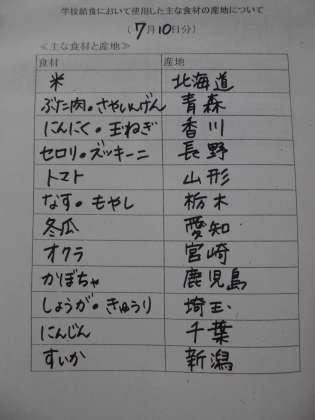 学校給食において使用した主な食材の産地について
(7月10日分)
≪主な食材と産地≫
食材 産地
米 北海道
ぶた肉。さやいんげん 青森
にんにく。玉ねぎ 香川
セロリ。ズッキーニ 長野
トマト 山形
なす。もやし 栃木
冬瓜 愛知
オクラ 宮崎
かぼちゃ 鹿児島
しょうが。きゅうり 埼玉
にんじん 千葉
すいか 新潟